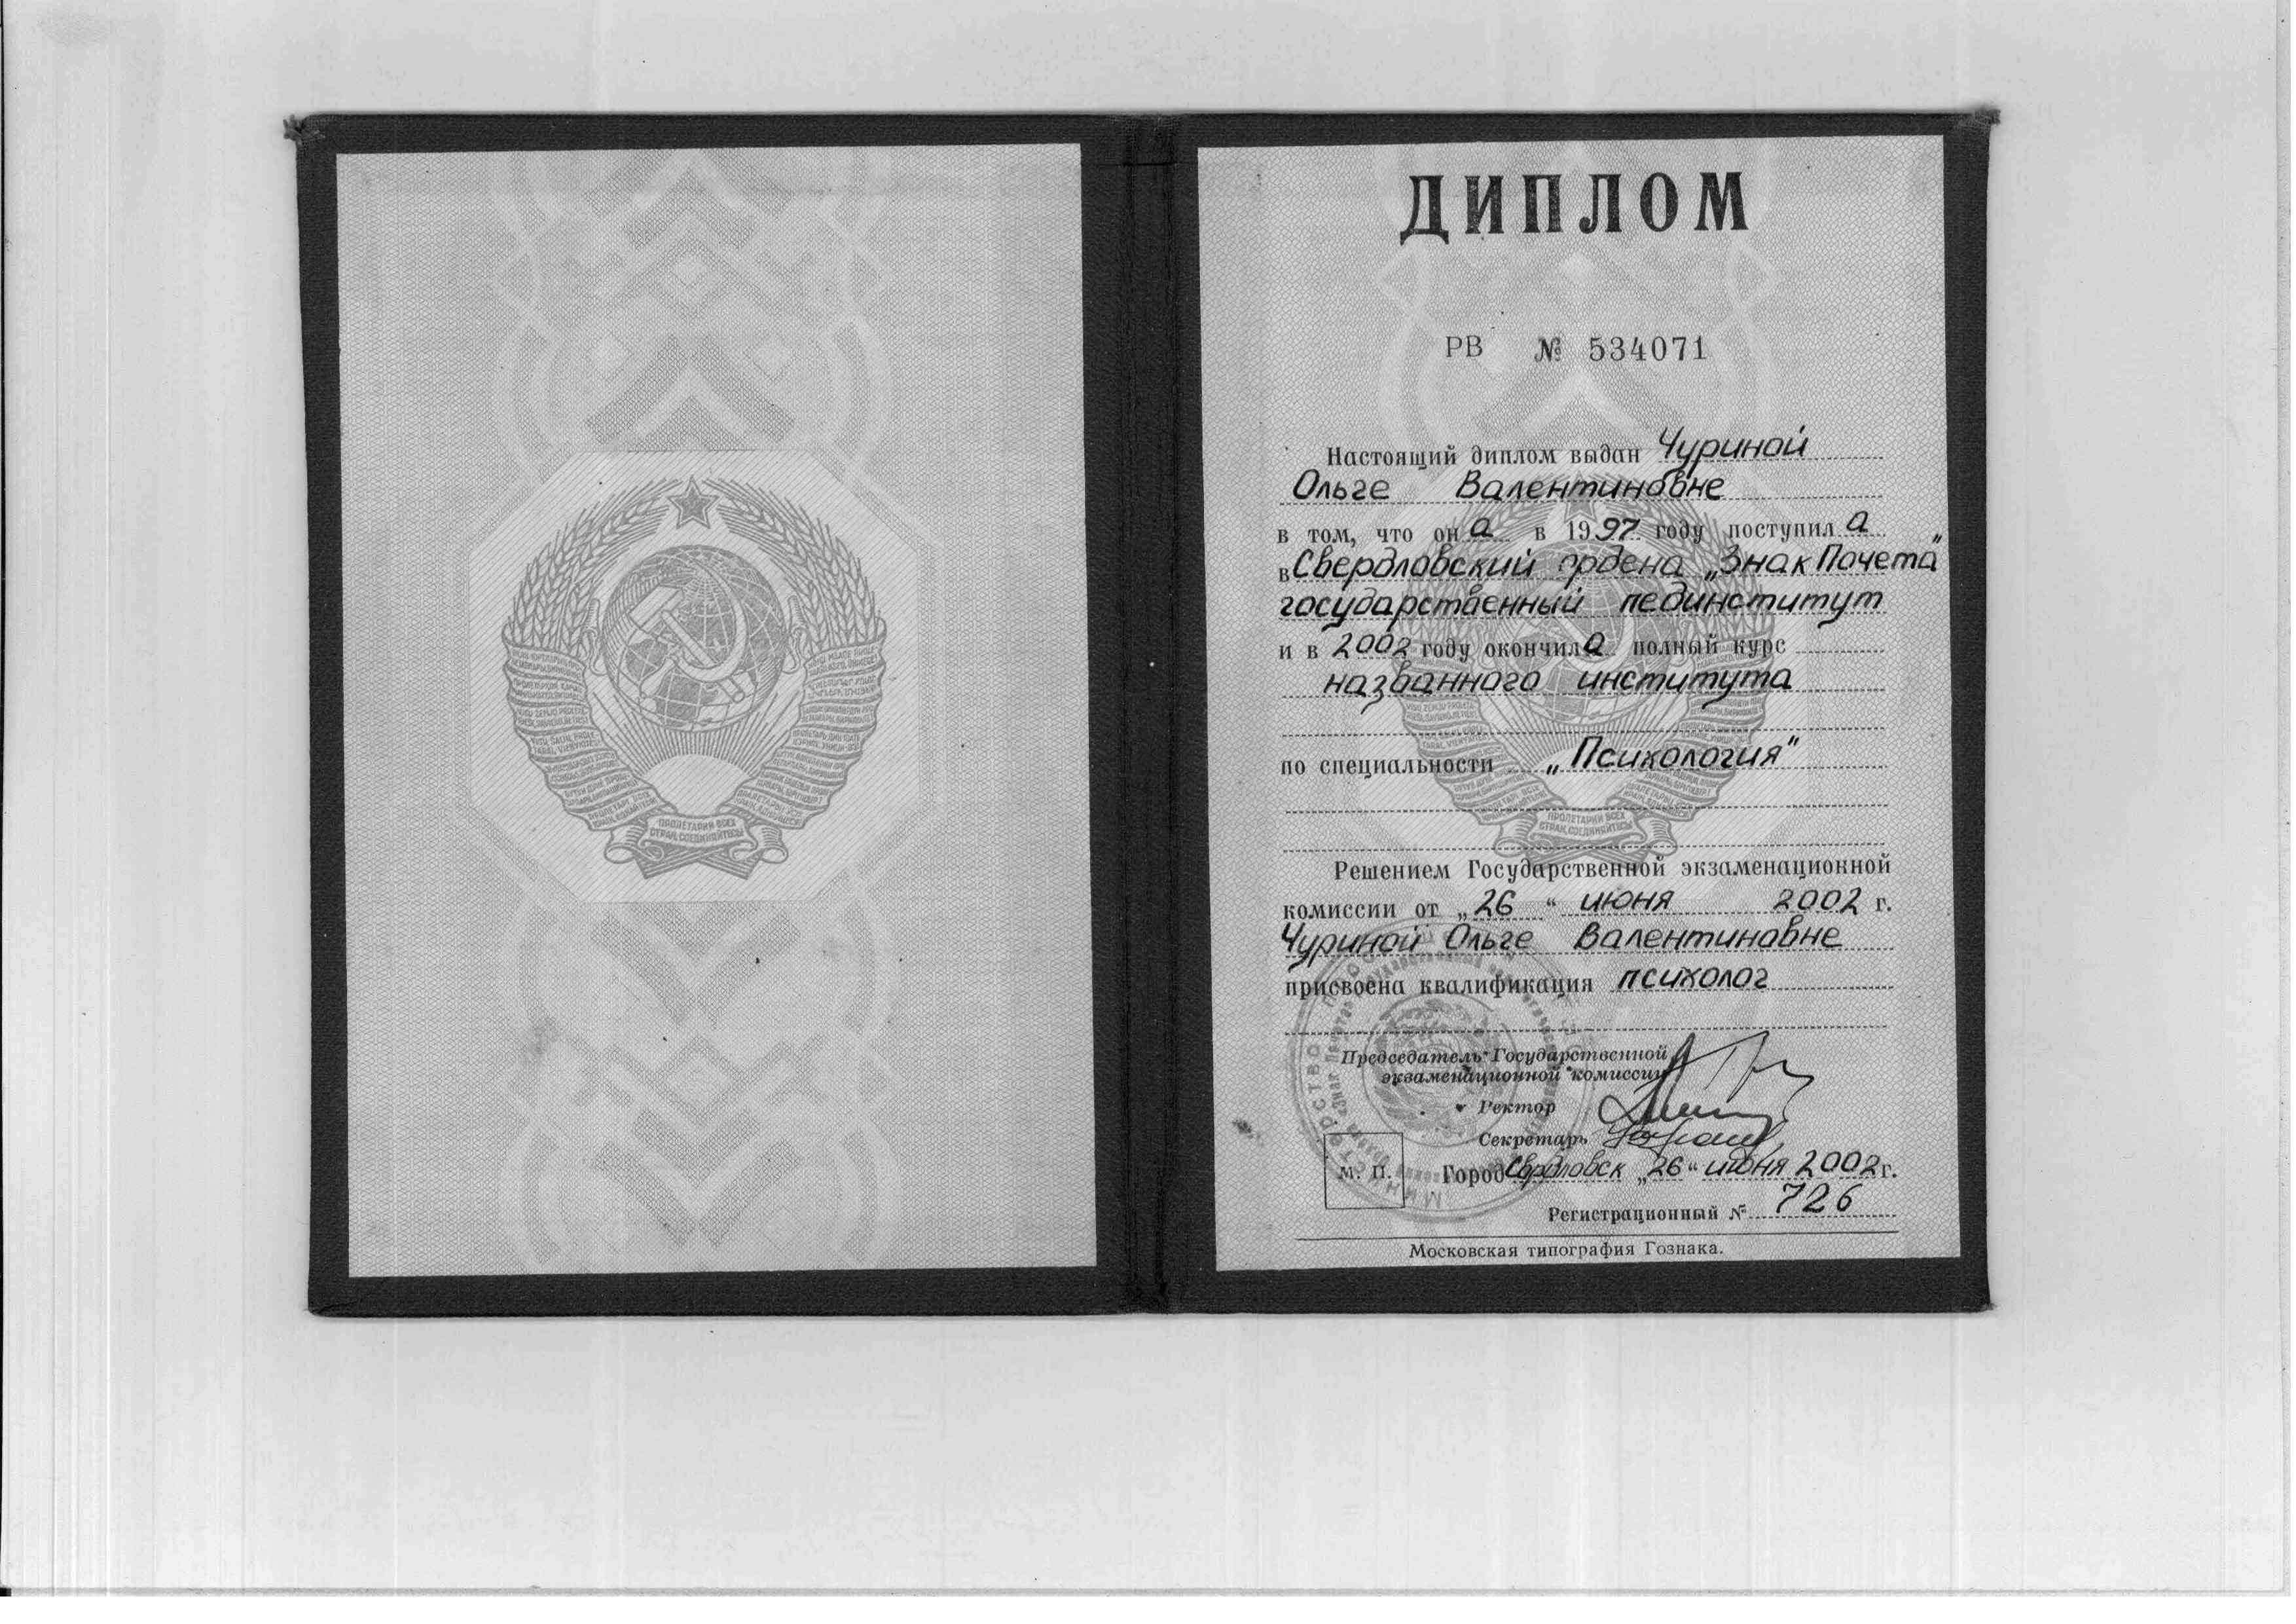 ПРОЛЕТАРИИ ВСЕХ
СТРАН, СОЕДИНЯЙТЕСЬ!
ДИПЛОМ
РВ № 534071
Настоящий диплом выдан Чуриной
Ольге Валентиновне
в том, что он а в 1997 году поступил а
в Свердловский ордена „Знак Почета"
государственный пединститут
и в 2002 году окончила полный курс
названного института
по специальности „Психология"
ПРОЛЕТАРИИ ВСЕХ
СТРАН, СОЕДИНЯЙТЕСЬ!
Решением Государственной экзаменационной
комиссии от „26" июня 2002 г.
Чуриной Ольге Валентиновне
присвоена квалификация психолог
Председатель Государственной
экзаменационной комиссии
Ректор
Секретарь
М. П. Город Свердловск „26" июня 2002 г.
Регистрационный № 726
Московская типография Гознака.